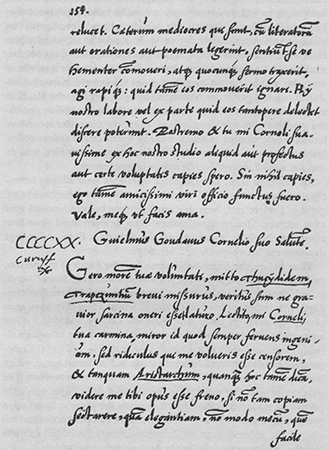 159.
relucet. Cæterum mediocres que sunt, cũ literatorũ
aut orationes aut poemata legerint, sentiunt se ve
hementer comoveri, atq; quocunq; sermo traxerit,
agi rapiq;: quid tamẽ eos commoverit ignari. Hij
nostro labore vel ex parte quid eos tantopere delectet
discere poterunt. Postremo & tu mi Corneli sua
vissime ex hoc nostro studio aliquid aut profectus
aut certe voluptatis capies spero. Sin nihil capies,
ego tamẽ amicissimi viri officio functus fuero.
Vale, meq; ut facis ama.
CCCCXX. Guielmus Goudanus Cornelio suo Salutẽ.
Gero morẽ tuæ voluntati, mitto Thucydidem,
Trapezuntiũ brevi missurus, veritus sim ne gra
vior sarcina oneri esset latiro. Lectito, mi Corneli
tua carmina, miror id quod semper fervens ingeni
um, sed ridiculus que me volueris esse censorem,
& tanquam Aristarchum, quanq; hoc tamẽ
videre me tibi opus esse freno, si nõ tam copiam
sectarere, quã elegantiam, nõ modo mecũ, quẽ
facile